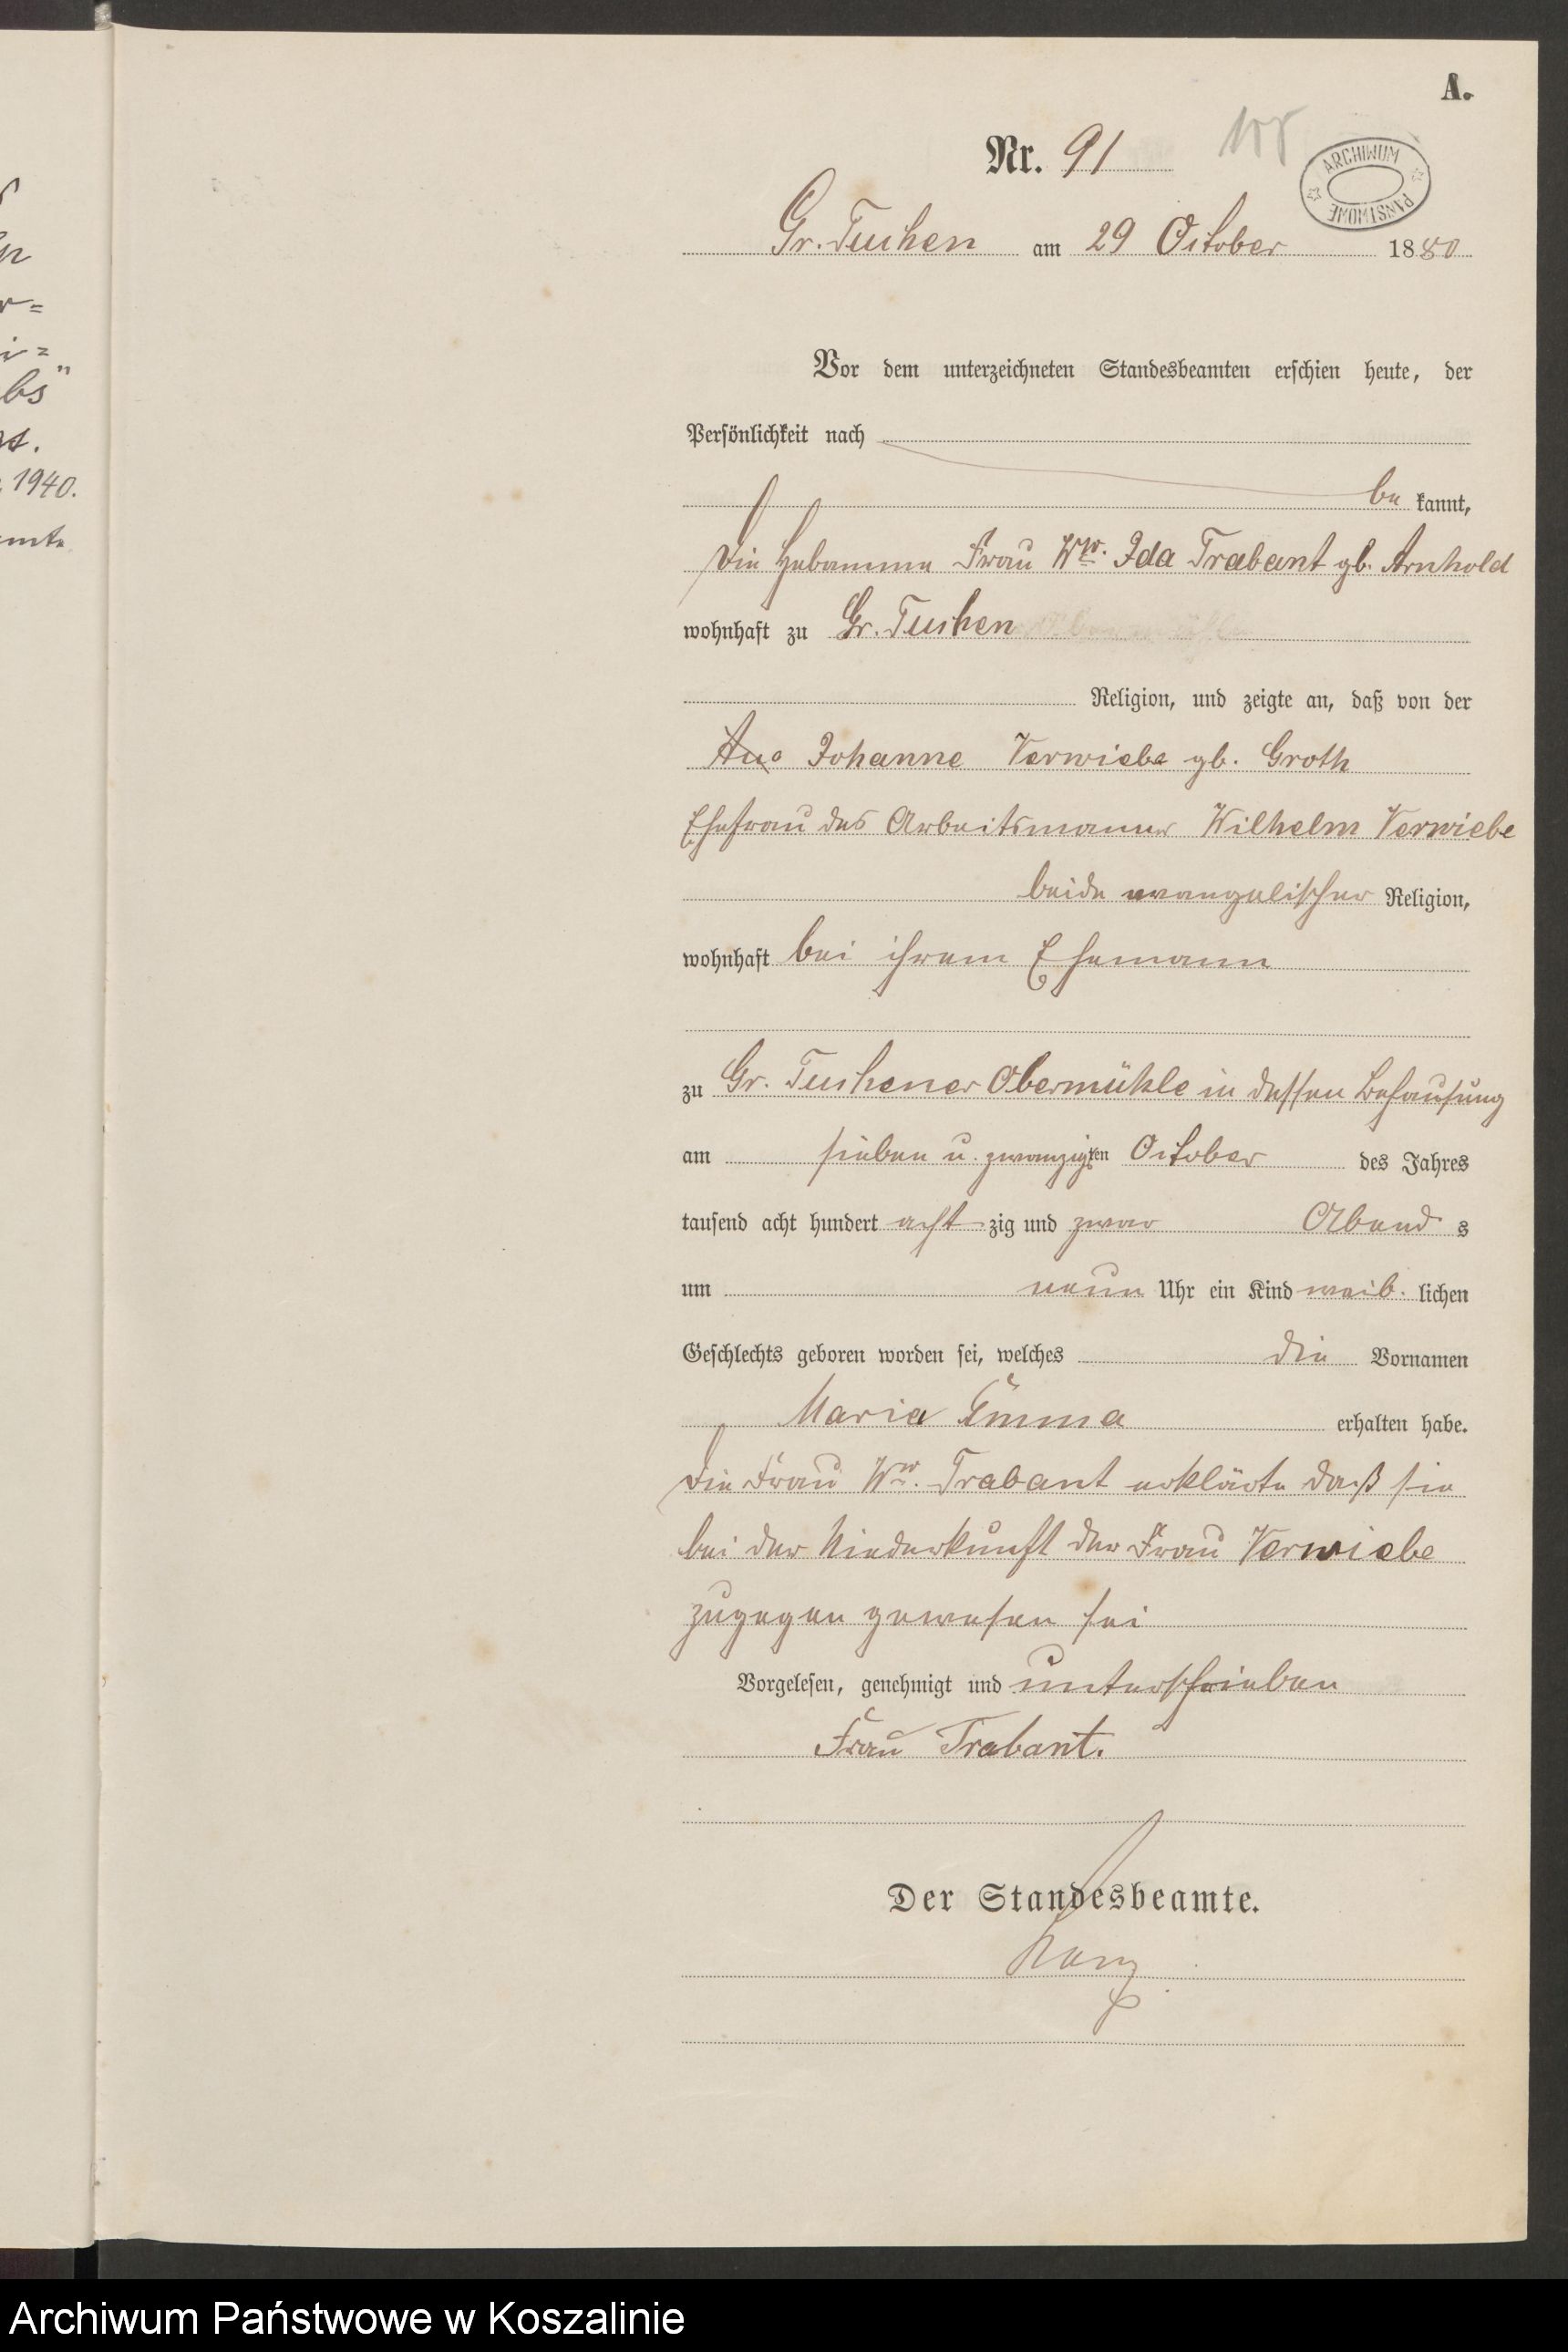 br=
i=
bs"
1940.
amte
A.
Nr. 91
ARCHIWUM PAŃSTWOWE
Gr. Tuchen am 29 October 1880
Vor dem unterzeichneten Standesbeamten erschien heute, der
Persönlichkeit nach
be kannt,
die Hebamme Frau Ww. Ida Trabant gb. Arnhold
wohnhaft zu Gr. Tuchen
Religion, und zeigte an, daß von der
Johanne Verwiebe gb. Groth
Ehefrau des Arbeitsmanns Wilhelm Verwiebe
beide evangelischer Religion,
wohnhaft bei ihrem Ehemann
zu Gr. Tuchener Obermühle in dessen Behausung
am sieben u. zwanzigsten October des Jahres
tausend acht hundert acht zig und zwar Abend s
um neun Uhr ein Kind weib. lichen
Geschlechts geboren worden sei, welches die Vornamen
Maria Emma erhalten habe.
die Frau Ww. Trabant erklärte daß sie
bei der Niederkunft der Frau Verwiebe
zugegen gewesen sei
Vorgelesen, genehmigt und unterschrieben
Frau Trabant.
Der Standesbeamte.
Archiwum Państwowe w Koszalinie